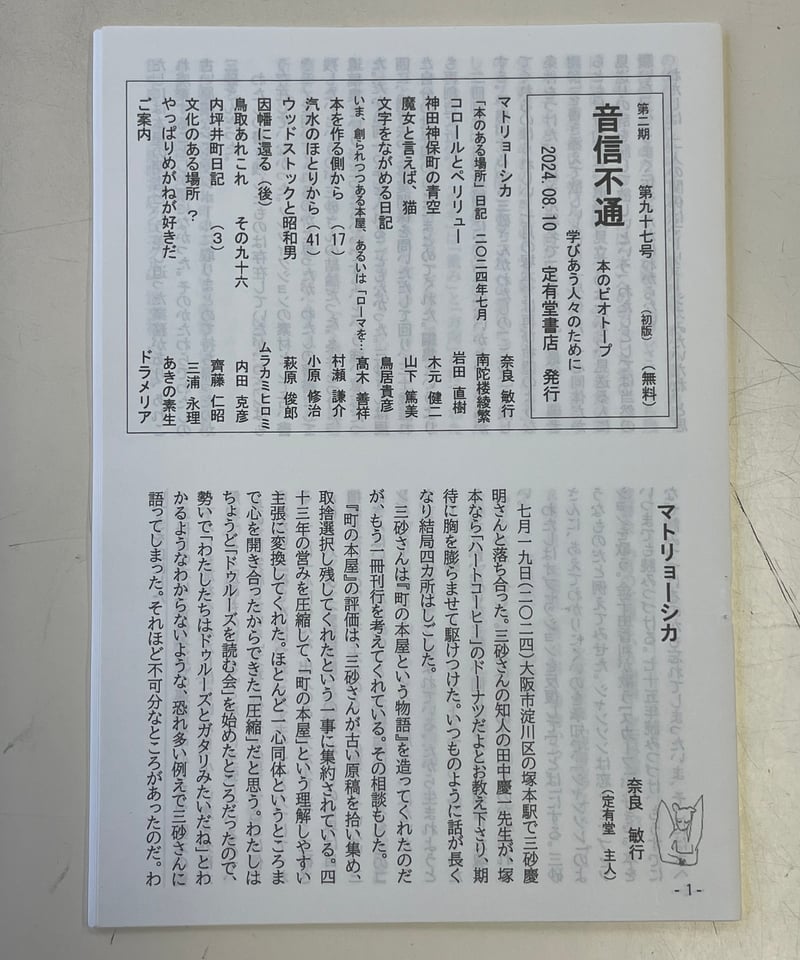 第二期　第九十七号　（初版）　（無料）
音信不通　本のビオトープ
学びあう人々のために
2024. 08. 10　定有堂書店　発行
マトリョーシカ　奈良 敏行
「本のある場所」日記　二〇二四年七月　南陀楼綾繁
コロールとペリリュー　岩田 直樹
神田神保町の青空　木元 健二
魔女と言えば、猫　山下 篤美
文字をながめる日記　鳥居貴彦
いま、創られつつある本屋、あるいは「ローマを…　髙木 善祥
本を作る側から　（17）　村瀬 謙介
汽水のほとりから　（41）　小原 修治
ウッドストックと昭和男　萩原 俊郎
因幡に還る（後）　ムラカミヒロミ
鳥取あれこれ　その九十六　内田 克彦
内坪井町日記　（3）　齊藤 仁昭
文化のある場所　？　三浦 永理
やっぱりめがねが好きだ　あきの素生
ご案内　ドラメリア
マトリョーシカ
奈良　敏行
（定有堂　主人）
七月一九日（二〇二四）大阪市淀川区の塚本駅で三砂慶
明さんと落ち合った。三砂さんの知人の田中慶一先生が、塚
本なら「ハートコーヒー」のドーナツだよとお教え下さり、期
待に胸を膨らませて駆けつけた。いつものように話が長く
なり結局四カ所はしごした。
三砂さんは『町の本屋という物語』を造ってくれたのだ
が、もう一冊刊行を考えてくれている。その相談もした。
『町の本屋』の評価は、三砂さんが古い原稿を拾い集め、
取捨選択し残してくれたという一事に集約されている。四
十三年の営みを圧縮して、「町の本屋」という理解しやすい
主張に変換してくれた。ほとんど一心同体というところま
で心を開き合ったからできた「圧縮」だと思う。わたしは
ちょうど「ドゥルーズを読む会」を始めたところだったので、
勢いで「わたしたちはドゥルーズとガタリみたいだね」とわ
かるようなわからないような、恐れ多い例えで三砂さんに
語ってしまった。それほど不可分なところがあったのだ。わ
- 1 -